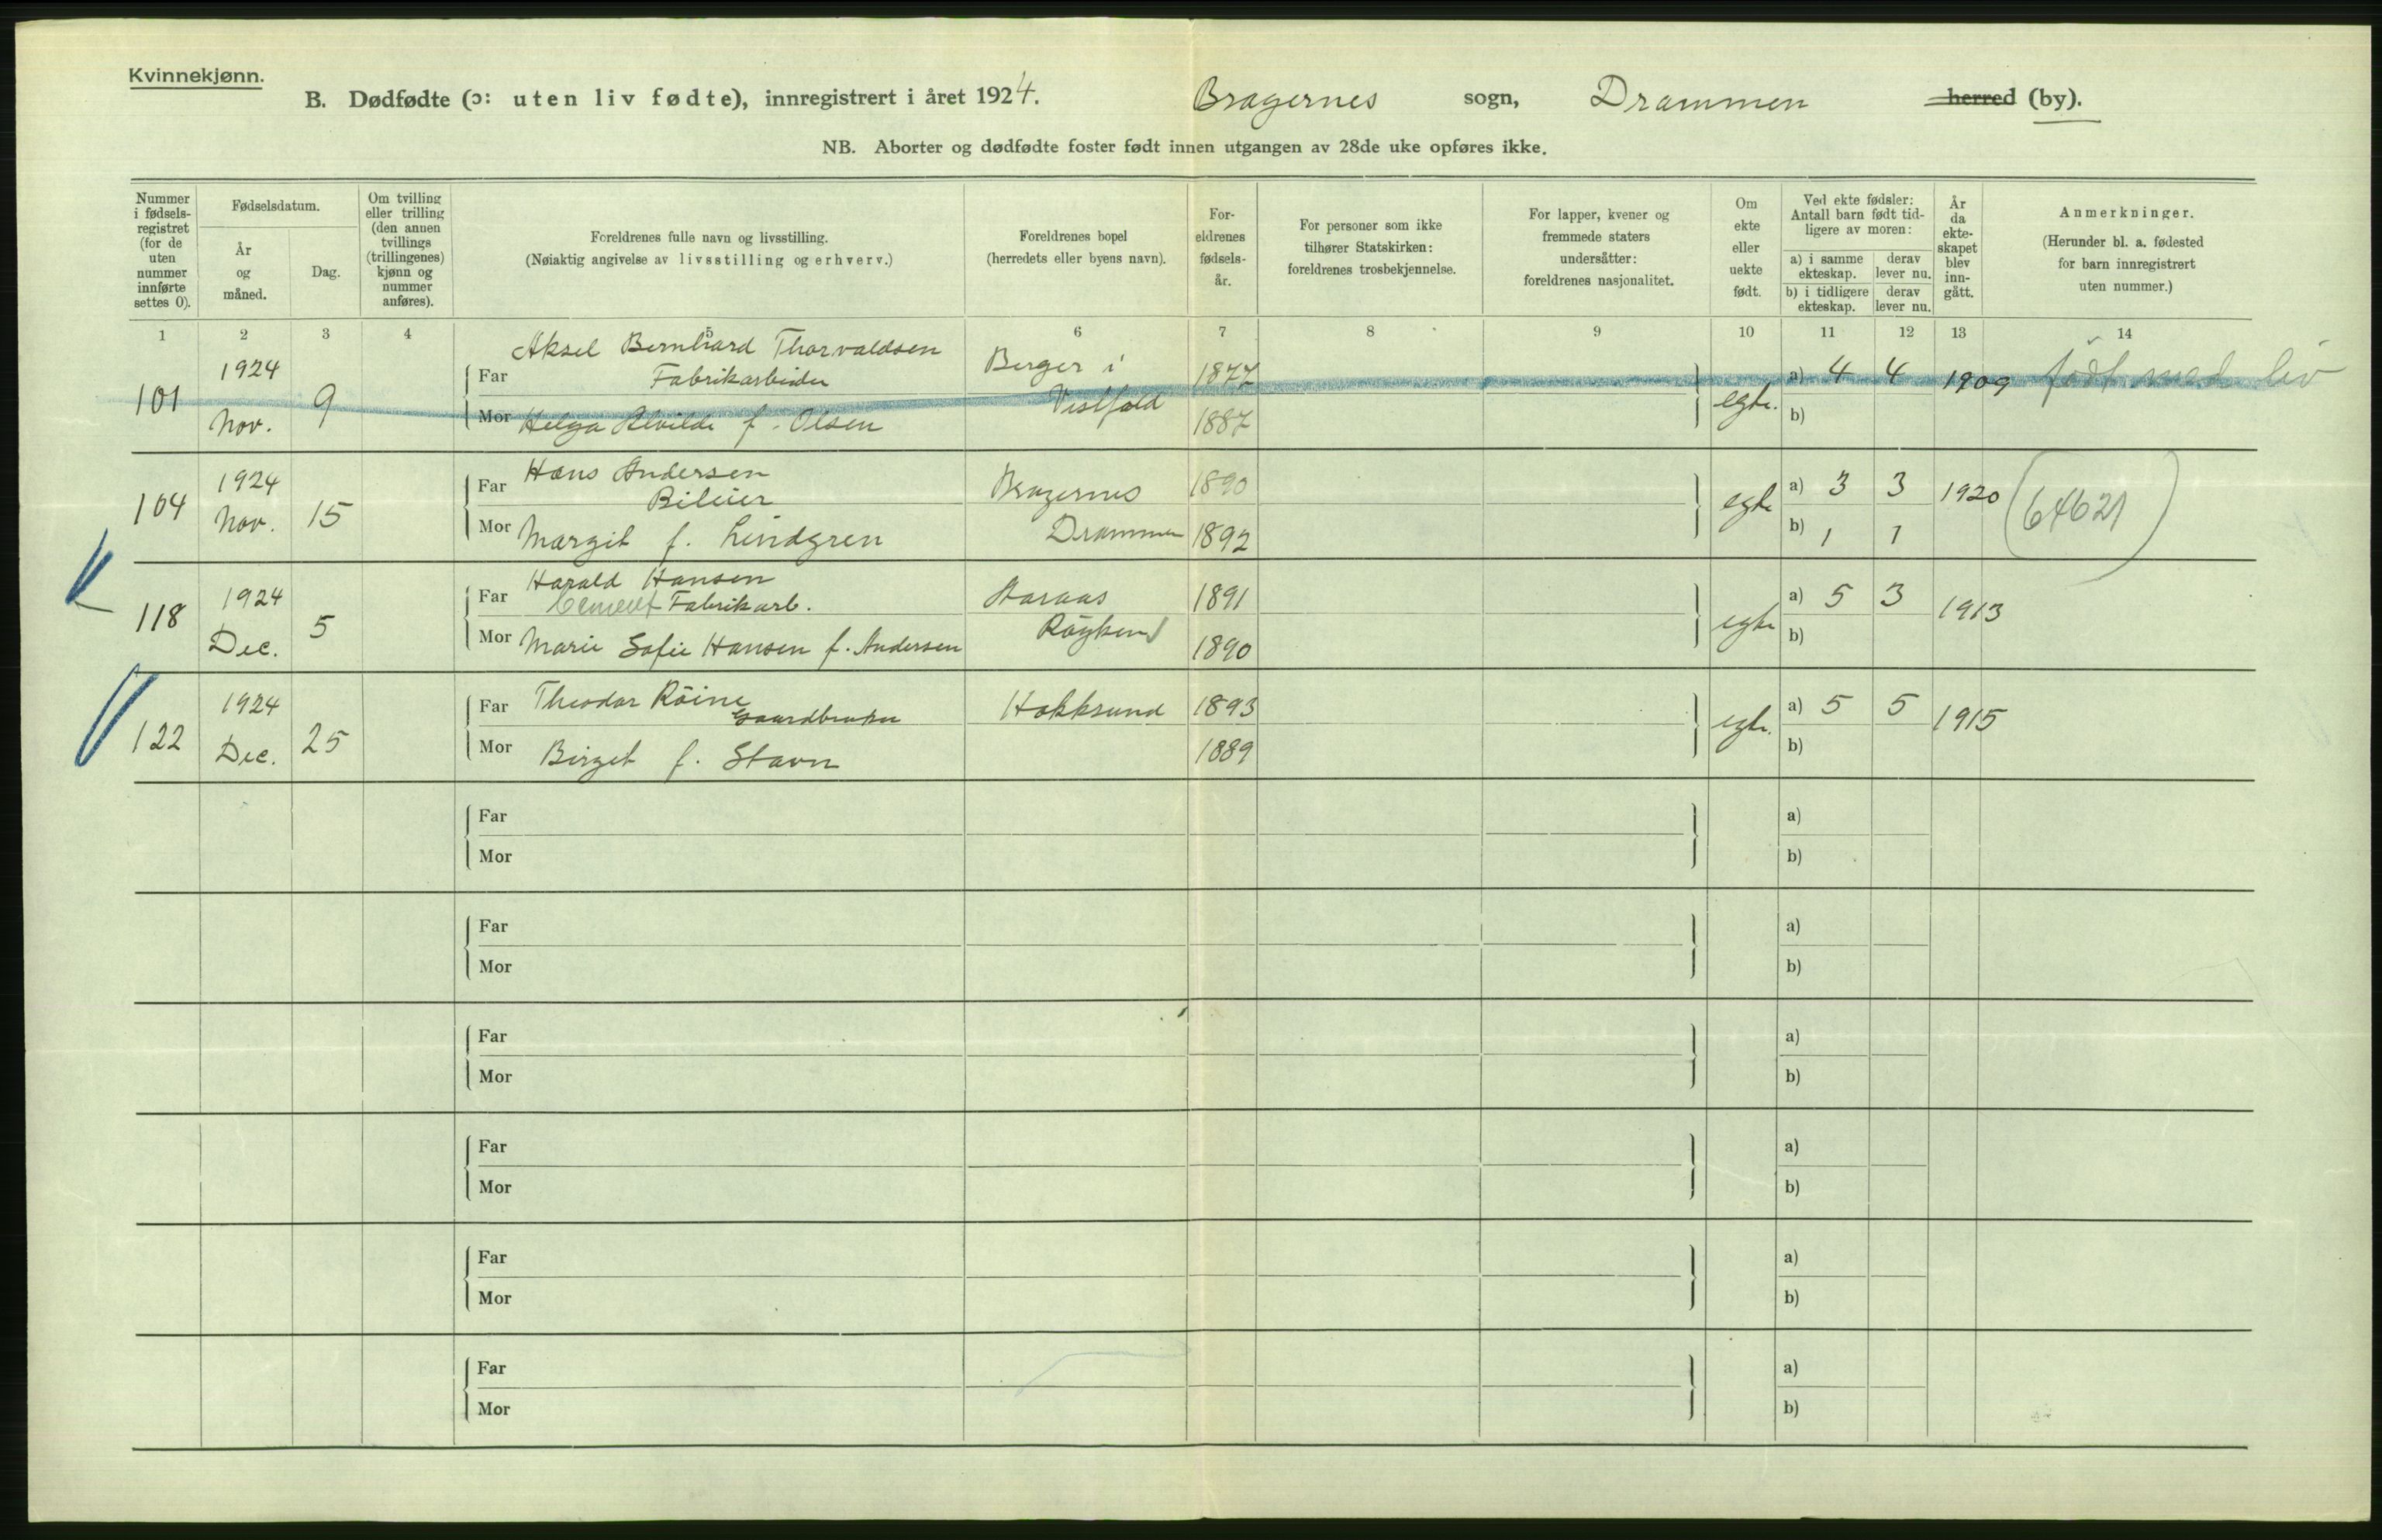 Kvinnekjønn.
B. Dødfødte (ɔ: uten liv fødte), innregistrert i året 1924. Bragernes sogn, Drammen herred (by).
NB. Aborter og dødfødte foster født innen utgangen av 28de uke opføres ikke.
Nummer i fødsels-registret (for de uten nummer innførte settes 0).
Fødselsdatum.
År og måned.
Dag.
Om tvilling eller trilling (den annen tvillings (trillingenes) kjønn og nummer anføres).
Foreldrenes fulle navn og livsstilling.
(Nøiaktig angivelse av livsstilling og erhverv.)
Foreldrenes bopel
(herredets eller byens navn).
For-eldrenes fødsels-år.
For personer som ikke tilhører Statskirken: foreldrenes trosbekjennelse.
For lapper, kvener og fremmede staters undersåtter: foreldrenes nasjonalitet.
Om ekte eller uekte født.
Ved ekte fødsler: Antall barn født tid-ligere av moren:
a) i samme ekteskap.
derav lever nu.
b) i tidligere ekteskap.
derav lever nu.
År da ekte-skapet blev inn-gått.
Anmerkninger.
(Herunder bl. a. fødested for barn innregistrert uten nummer.)
1 2 3 4 5 6 7 8 9 10 11 12 13 14
101 1924 Nov. 9
Far Aksel Bernhard Thorvaldsen
Fabrikarbeider
Berger i Vestfold
1877
Mor Helga Alvilde f. Olsen
1887
egte.
a) 4 4 1909 født med liv
b)
104 1924 Nov. 15
Far Hans Andersen
Bileier
Bragernes Drammen
1890
Mor Margit f. Lindgren
1892
egte
a) 3 3 1920 (64621)
b) 1 1
118 1924 Dec. 5
Far Harald Hansen
Cement Fabrikarb.
Røyken
1891
Mor Marie Sofie Hansen f. Andersen
1890
egte
a) 5 3 1913
b)
122 1924 Dec. 25
Far Theodor Röine
Gaardbruker
Hokksund
1893
Mor Birget f. Stavn
1889
egte.
a) 5 5 1915
b)
Far
Mor
a)
b)
Far
Mor
a)
b)
Far
Mor
a)
b)
Far
Mor
a)
b)
Far
Mor
a)
b)
Far
Mor
a)
b)